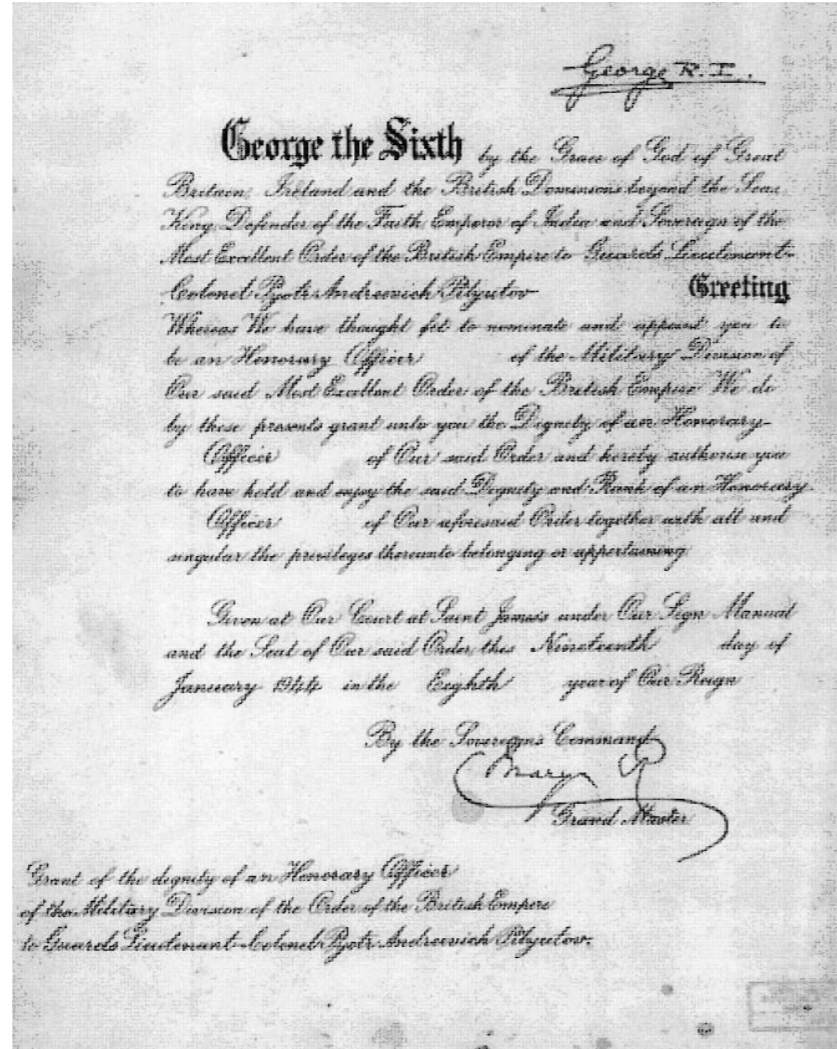 George R.I.
George the Sixth by the Grace of God of Great
Britain, Ireland and the British Dominions beyond the Seas
King, Defender of the Faith Emperor of India and Sovereign of the
Most Excellent Order of the British Empire to Guards Lieutenant-
Colonel Pyotr Andreevich Pilyutov Greeting
Whereas We have thought fit to nominate and appoint you to
be an Honorary Officer of the Military Division of
Our said Most Excellent Order of the British Empire We do
by these presents grant unto you the Dignity of an Honorary
Officer of Our said Order and hereby authorise you
to have hold and enjoy the said Dignity and Rank of an Honorary
Officer of Our aforesaid Order together with all and
singular the privileges thereunto belonging or appertaining
Given at Our Court at Saint James's under Our Sign Manual
and the Seal of Our said Order this Nineteenth day of
January 1944 in the Eighth year of Our Reign
By the Sovereign's Command
Mary R
Grand Master
Grant of the dignity of an Honorary Officer
of the Military Division of the Order of the British Empire
to Guards Lieutenant-Colonel Pyotr Andreevich Pilyutov.